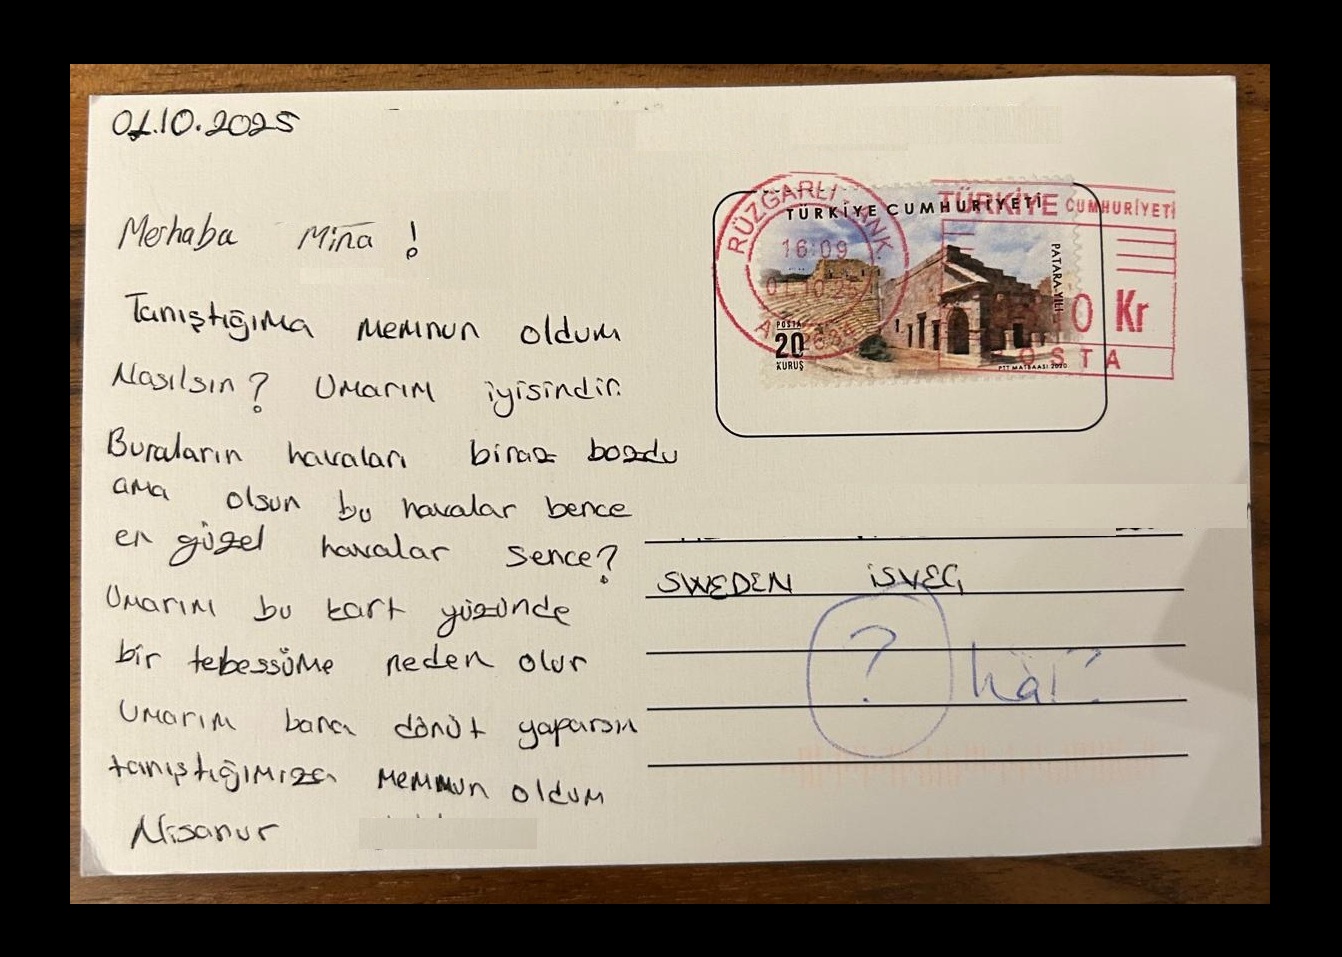 01.10.2025
Merhaba Mina !
Tanıştığıma memnun oldum
Nasılsın? Umarım iyisindir.
Buraların havaları biraz bozdu
ama olsun bu havalar bence
en güzel havalar sence?
Umarım bu kart yüzünde
bir tebessüme neden olur
Umarım bana dönüt yaparsın
tanıştığımıza memnun oldum
Nisanur
RÜZGARLI ANK.
16:09
01 10 25
TÜRKİYE CUMHURİYETİ
PATARA YILI
POSTA
20
KURUŞ
PTT MATBAASI 2020
TÜRKİYE CUMHURİYETİ
0 Kr
POSTA
SWEDEN İSVEÇ
?